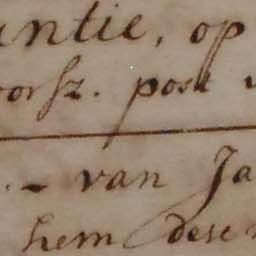 untie, op
oorsz. post
– van Ja
hem dese